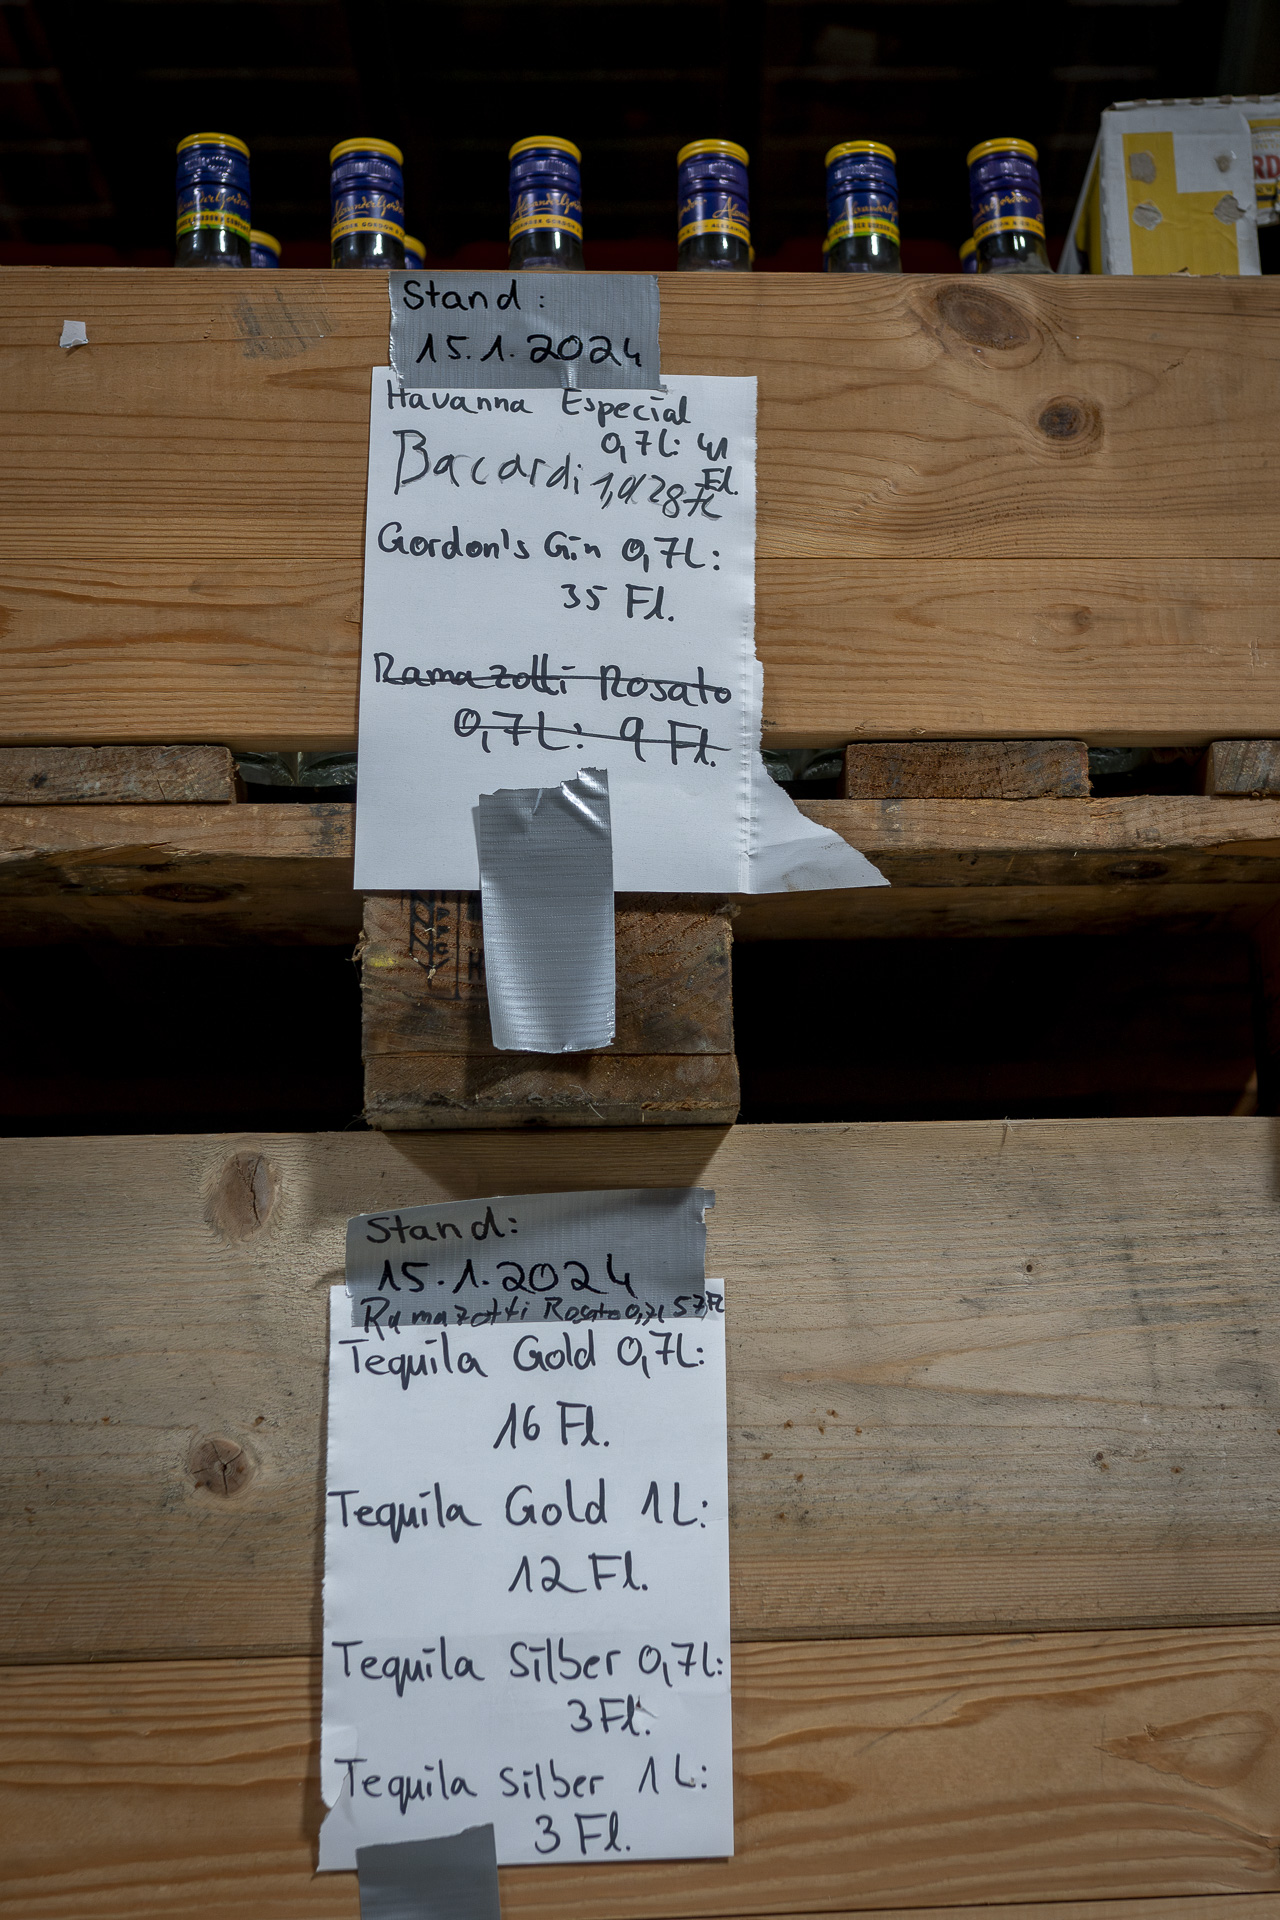 Stand:
15.1.2024
Havanna Especial
0,7L: 41
Fl.
Bacardi 1,0l 28 fl
Gordon's Gin 0,7L:
35 Fl.
Ramazotti Rosato
0,7L: 9 Fl.
Stand:
15.1.2024
Ramazotti Rosato 0,7l 57 Fl
Tequila Gold 0,7L:
16 Fl.
Tequila Gold 1L:
12 Fl.
Tequila Silber 0,7L:
3 Fl.
Tequila Silber 1L:
3 Fl.